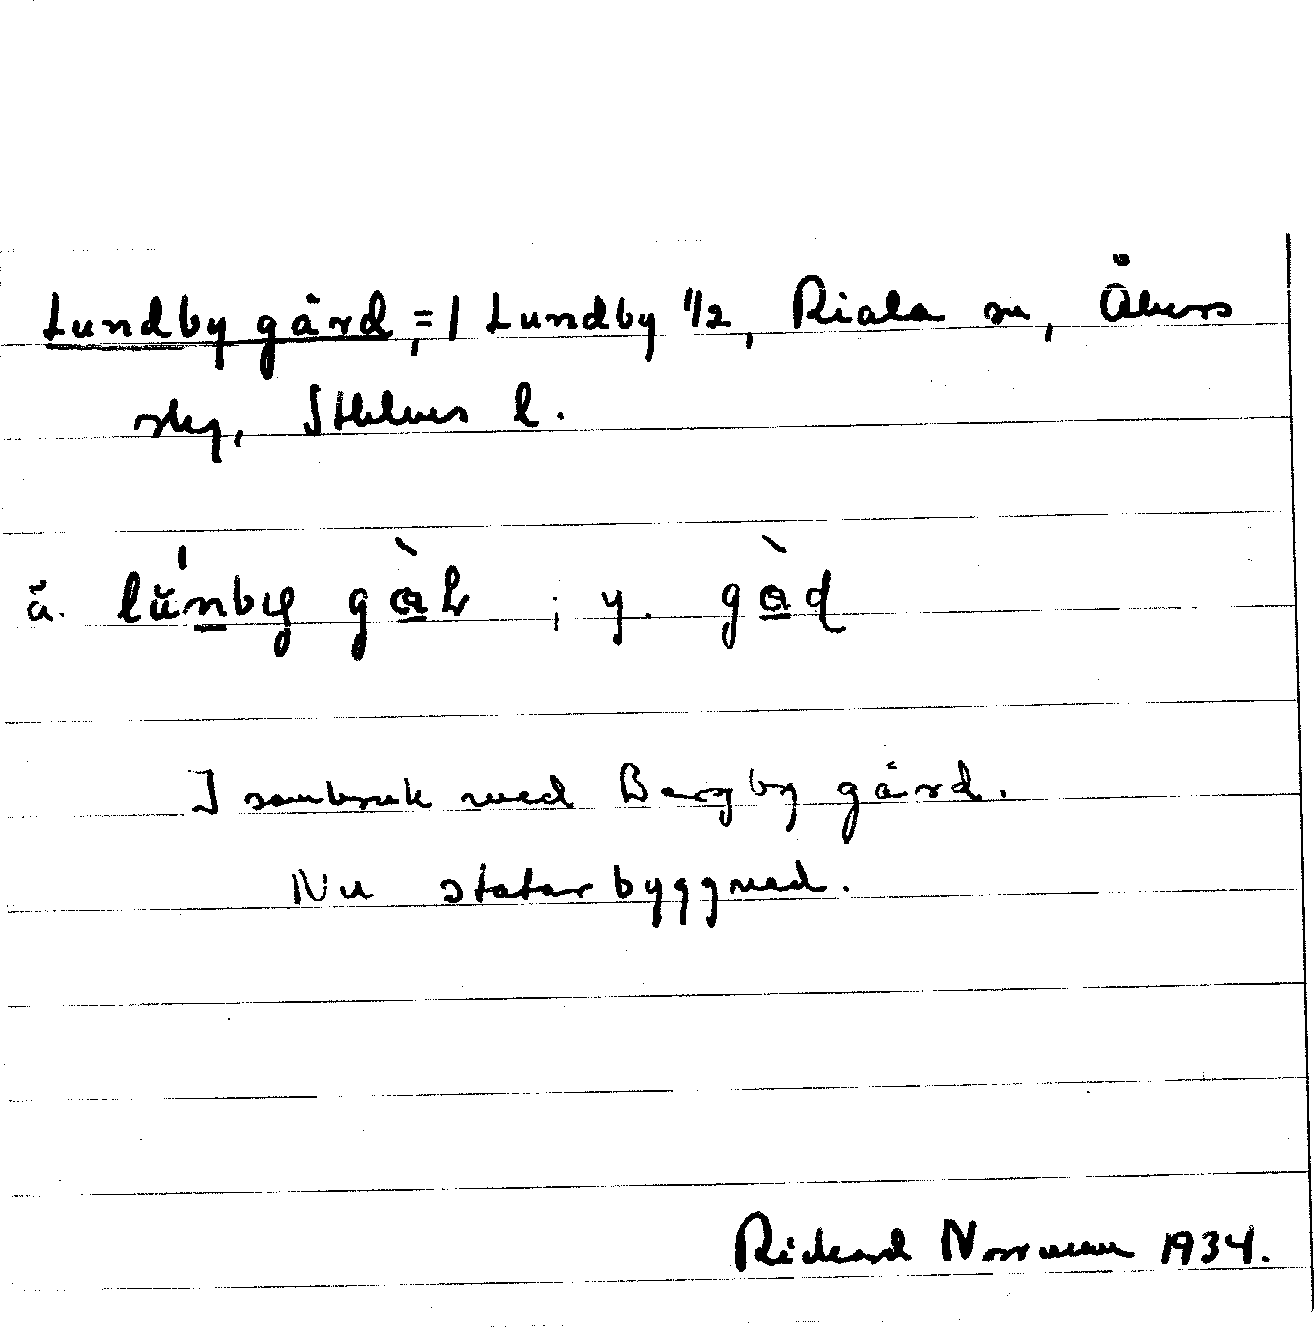 Lundby gård, =/ Lundby 1/2, Riala sn, Åkers
skg, Sthlms l.
ä. lúnby gàꞎ ; y. gàɖ
I sambruk med Bergby gård.
Nu statarbyggnad.
Rickard Norrman 1934.